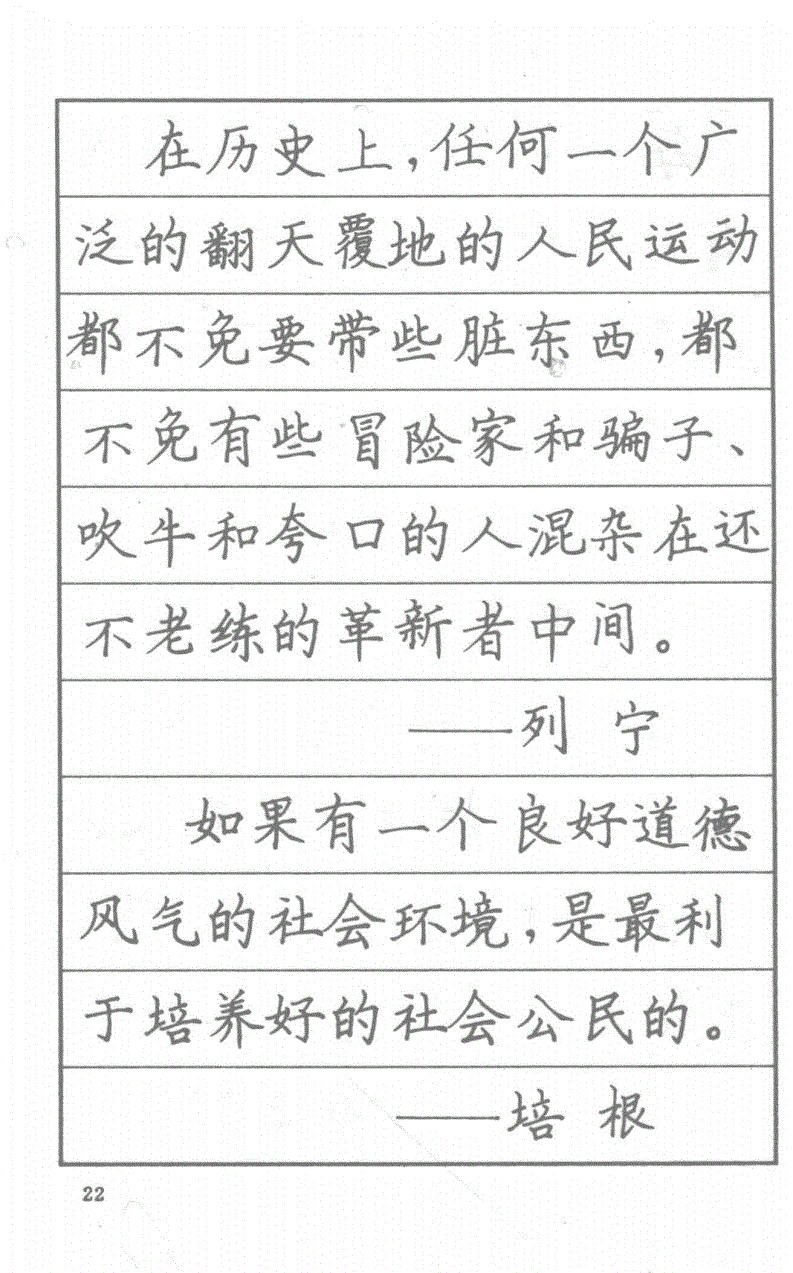 在历史上，任何一个广
泛的翻天覆地的人民运动
都不免要带些脏东西，都
不免有些冒险家和骗子、
吹牛和夸口的人混杂在还
不老练的革新者中间。
——列 宁
如果有一个良好道德
风气的社会环境，是最利
于培养好的社会公民的。
——培 根
22